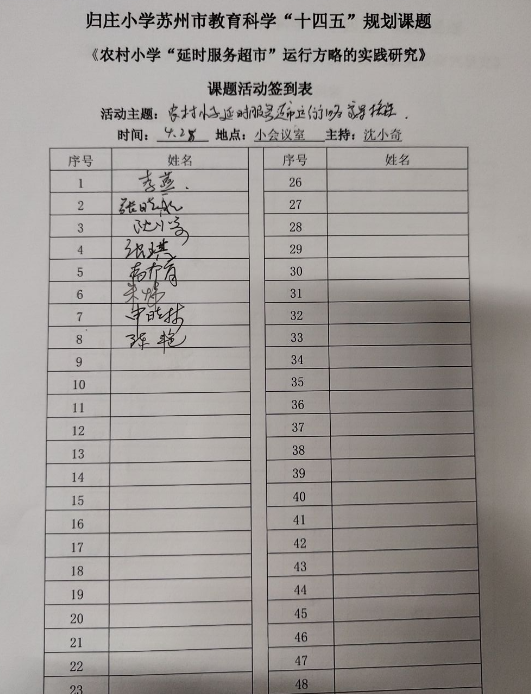 归庄小学苏州市教育科学“十四五”规划课题
《农村小学“延时服务超市”运行方略的实践研究》
课题活动签到表
活动主题：农村小学延时服务超市运行方略
时间：4.28 地点：小会议室 主持：沈小奇
序号 姓名 序号 姓名
1 李燕. 26
2 张晓 27
3 沈小奇 28
4 张琪 29
5 30
6 朱 31
7 申晓 32
8 陈艳 33
9 34
10 35
11 36
12 37
13 38
14 39
15 40
16 41
17 42
18 43
19 44
20 45
21 46
22 47
23 48